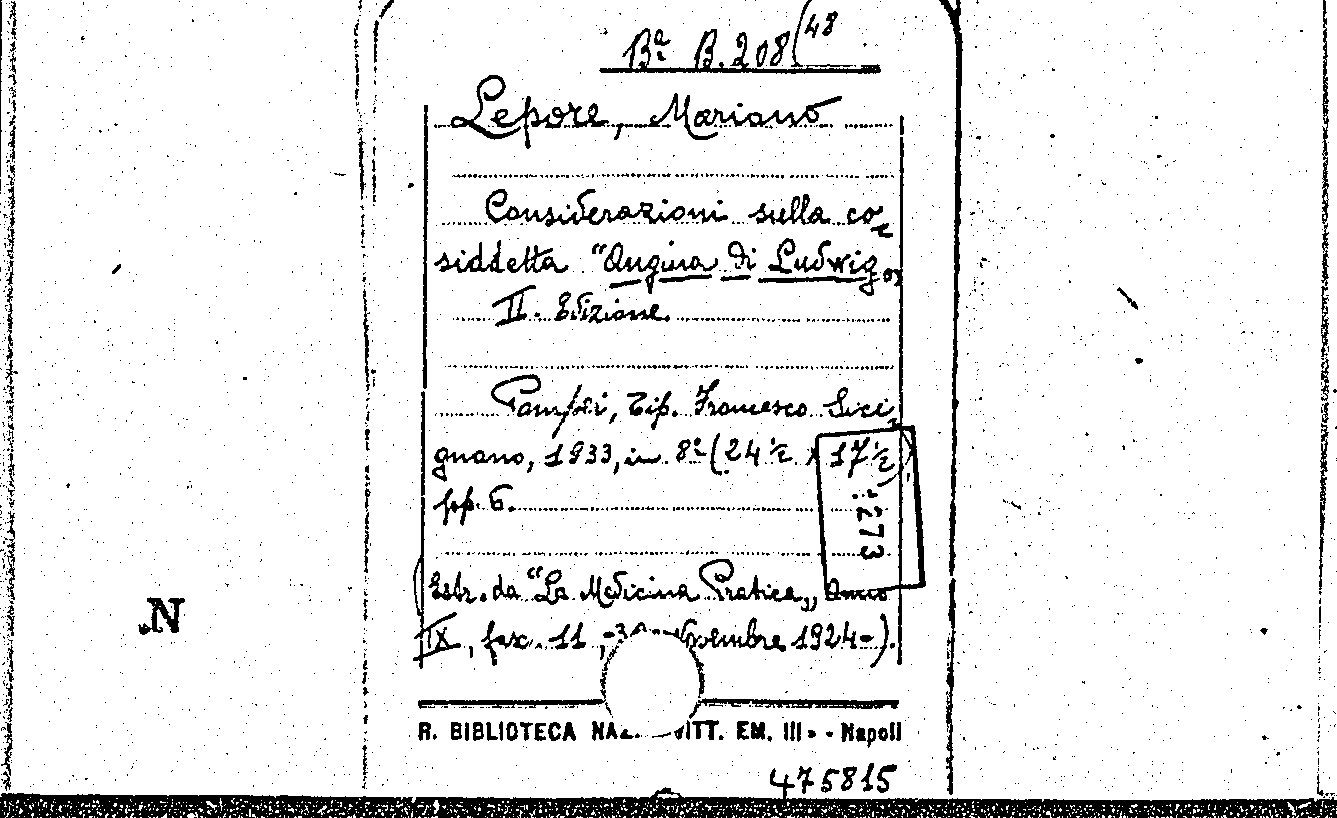 Bª B. 208(48
Lepore, Mariano
Considerazioni sulla co-
siddetta "Angina di Ludwig„
II. Edizione.
Pompei, Tip. Francesco Sici-
gnano, 1933, in 8º (24 ½ x 17 ½)
pp. 6.
273
(Estr. da "La Medicina Pratica„ Anno
IX, fasc. 11, -30 Novembre 1924-).
R. BIBLIOTECA NAZ. VITT. EM. III - Napoli
475815
N